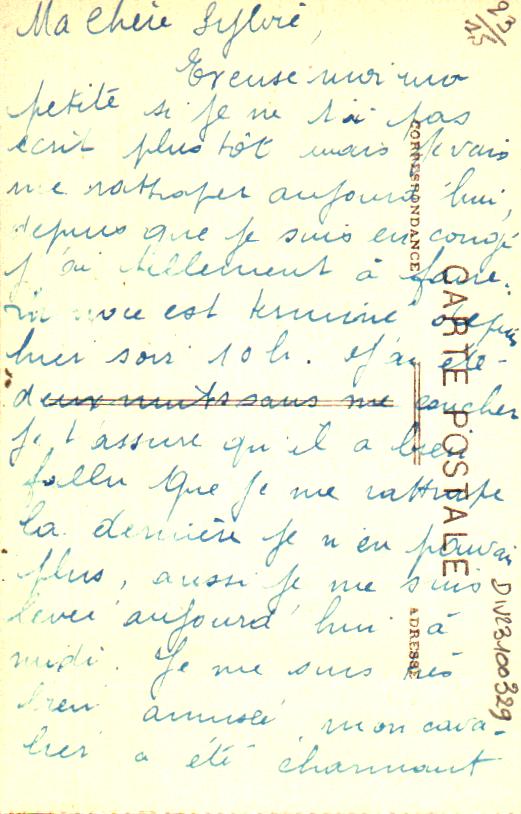 Ma Chère Sylvie,
Excuse moi ma
petite si je ne t'ai pas
écrit plus tôt mais je vais
me rattraper aujourd'hui,
depuis que je suis en congé
j'ai tellement à faire.
La noce est terminé depuis
hier soir 10 h. J'ai été
deux nuits sans me coucher
je t'assure qu'il a bien
fallu que je me rattrape
la dernière je n'en pouvais
plus, aussi je me suis
levée aujourd'hui à
midi. Je me suis très
bien amusée, mon cava-
lier a été charmant
CARTE POSTALE
CORRESPONDANCE
ADRESSE
23/
15
DIV23100329